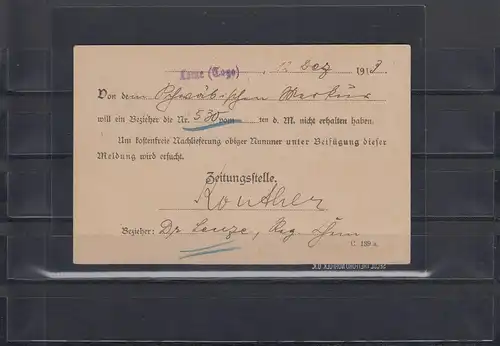 Lome (Togo), 12 Dez 1913.
Von dem Schwäbischen Merkur
will ein Bezieher die Nr. 530 vom ten d. M. nicht erhalten haben.
Um kostenfreie Nachlieferung obiger Nummer unter Beifügung dieser
Meldung wird ersucht.
Zeitungsstelle.
Bezieher: Dr Lenze, Reg.
C. 139 a.